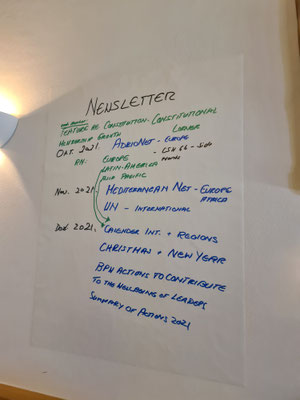 NEWSLETTER
FEATURE RE CONSTITUTION - CONSTITUTIONAL CORNER
MEMBERSHIP GROWTH
OKT. 2021. ADRIONET - EUROPE
- LSK 66 - Side
RH: EUROPE
LATIN-AMERICA
ASIA PACIFIC
NOV. 2021 MEDITERANEAN NET - EUROPE
AFRICA
UN - INTERNATIONAL
DEC 2021. CALENDER INT. + REGIONS
CHRISTMAS + NEW YEAR
BPW ACTIONS TO CONTRIBUTE
TO THE WELLBEING OF LEADERS
SUMMARY OF ACTIONS 2021